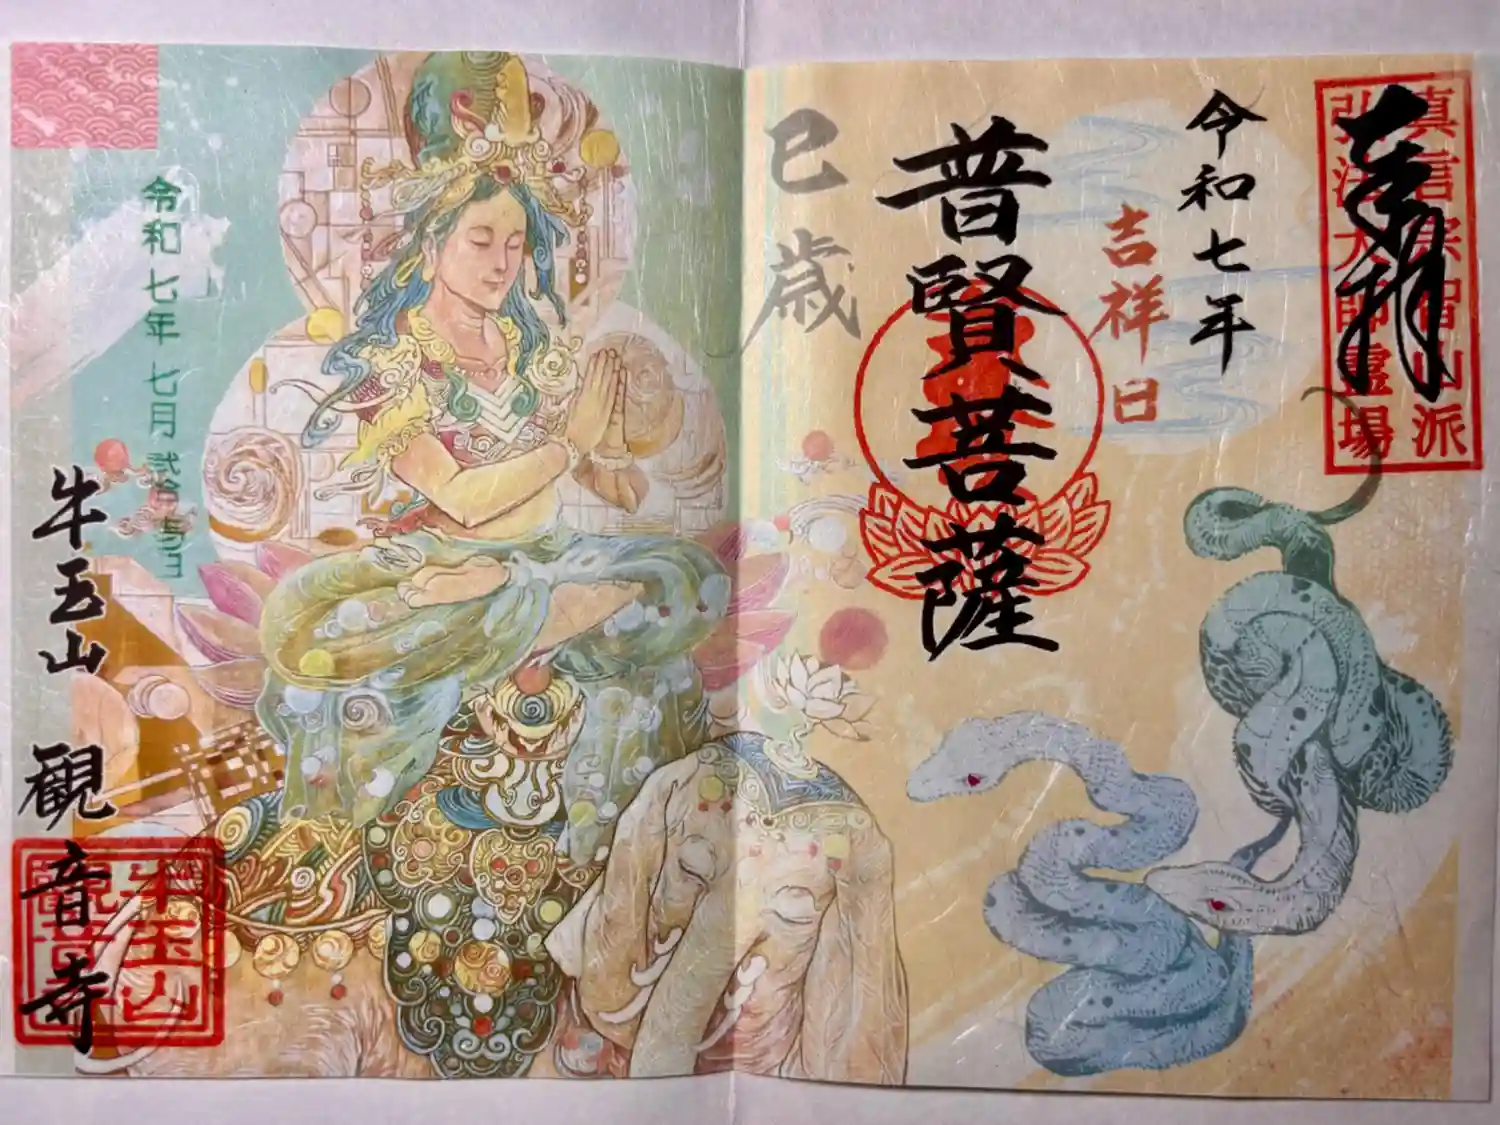 真言宗智山派
弘法大師霊場
奉拝
令和七年
吉祥日
普賢菩薩
巳歳
令和七年七月弐拾五日
牛玉山
観音寺
牛玉山
觀音寺